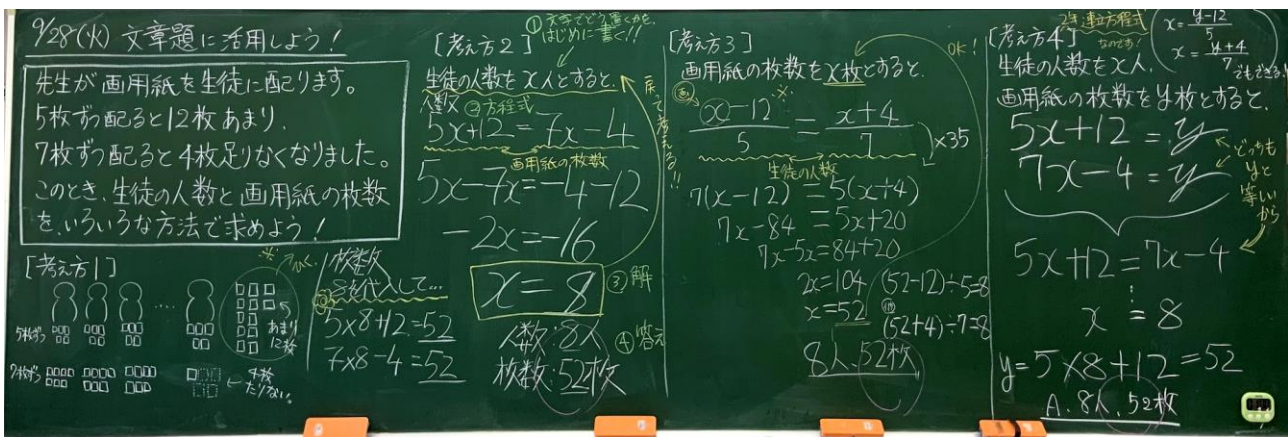 9/28(火) 文章題に活用しよう!
先生が画用紙を生徒に配ります。
5枚ずつ配ると12枚あまり、
7枚ずつ配ると4枚足りなくなりました。
このとき、生徒の人数と画用紙の枚数
を、いろいろな方法で求めよう!
[考え方1]
※ひく
5枚ずつ
あまり
12枚
7枚ずつ
4枚
たりない。
枚数
8を代入して…
5×8+12=52
7×8-4=52
[考え方2]
①文字でどう置くかを、
はじめに書く!!
生徒の人数をx人とすると、
人数 ②方程式
5x+12=7x-4
画用紙の枚数
5x-7x=-4-12
-2x=-16
x=8
③解
人数:8人
④答え
枚数:52枚
戻って考える!!
[考え方3]
OK!
画用紙の枚数をx枚とすると、
(x-12)/5 = (x+4)/7
※
×35
生徒の人数
7(x-12)=5(x+4)
7x-84=5x+20
7x-5x=84+20
2x=104
x=52
(52-12)÷5=8
(52+4)÷7=8
8人、52枚
[考え方4]
2年 連立方程式
なのです!
x=(y-12)/5
x=(y+4)/7
でもできる!
生徒の人数をx人、
画用紙の枚数をy枚とすると、
5x+12=y
7x-4=y
どっちも
yと
等しい
から
5x+12=7x-4
⋮
x=8
y=5×8+12=52
A. 8人、52枚